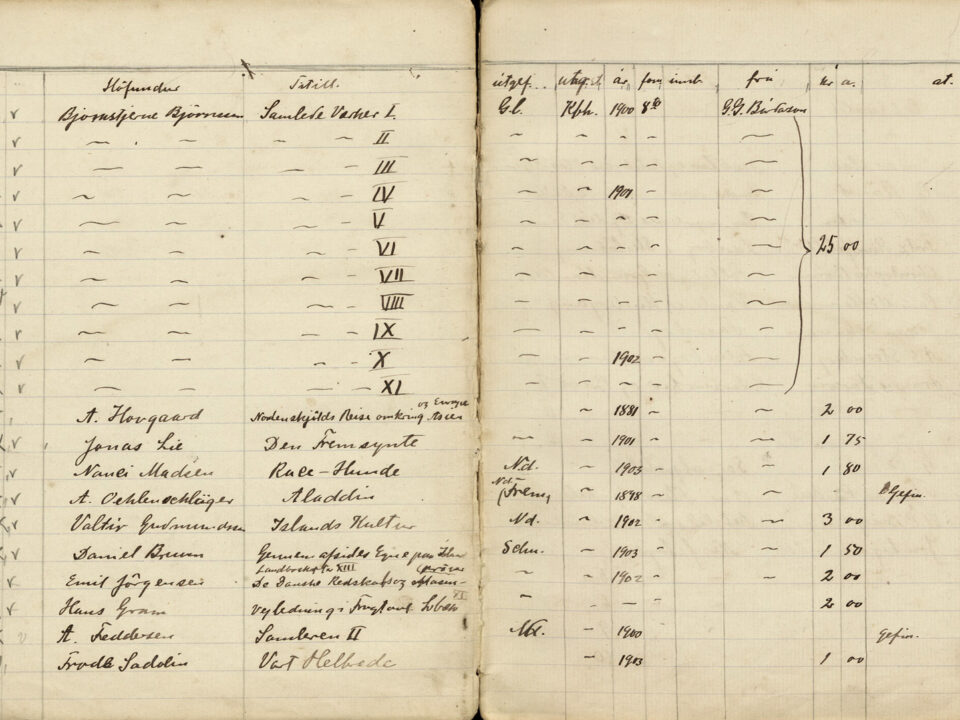 Höfundur Titill. útgef. útg.st. ár form innb. frá kr a. at.
v Bjørnstjerne Bjørnsson Samlede Værker I. Gl. Kph. 1900 8vo G. G. Bárðason
v — — — — II — — — —
v — — — — III — — — —
v — — — — IV — — 1901 — —
v — — — — V — — — —
v — — — — VI — — — — 25 00
v — — — — VII — — — —
v — — — — VIII — — — —
v — — — — IX — — — —
v — — — — X — — 1902 — —
v — — — — XI — — — — —
og Europa
v A. Hovgaard Nordenskjölds Reise omkring Asien — 1881 — — 2 00
v Jonas Lie Den Fremsynte — — 1901 — — 1 75
v Nanci Madsen Race-Hunde Nd. — 1903 — — 1 80
v A. Oehlenschläger Aladdin Nd. (Frem) — 1898 — — Gefin.
v Valtir Guðmundsson Islands Kultur Nd. — 1902 — — 3 00
v Daniel Bruun Gennem afsides Egne paa Schu. — 1903 — — 1 50
XIII
v Emil Jörgensen De Danske Redskabs og — — 1902 — — 2 00
v Hans Gram Vejledning i — — — — 2 00
v A. Feddersen Samleren II Nd. — 1900 — gefin.
Frode Sadolin Vort Helbrede — 1903 — 1 00